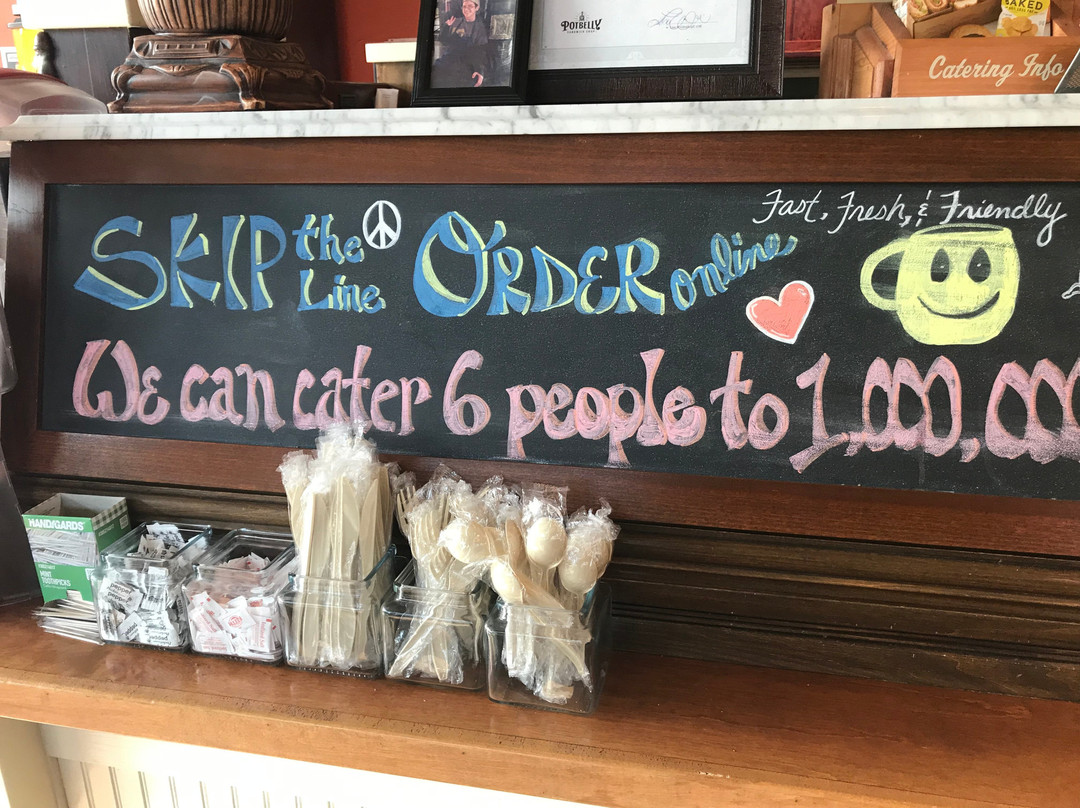 POTBELLY
SANDWICH SHOP
BAKED
Catering Info
Fast, Fresh, & Friendly
SKIP the Line ORDER online
We can cater 6 people to 1,000,000
HANDGARDS
MINT
TOOTHPICKS
pepper
pepper